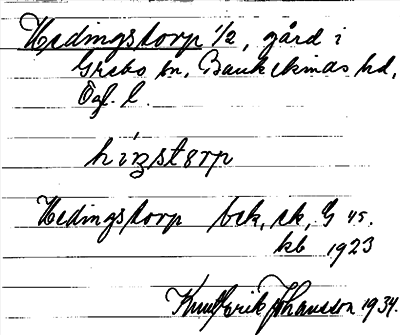 Hedingstorp 1/2, gård i
Grebo sn, Bankekinds hd,
Ögl. l.
híɲstɜrp
Hedingstorp bek, ek, G 45.
kb 1923
Knut Erik Johansson 1934.